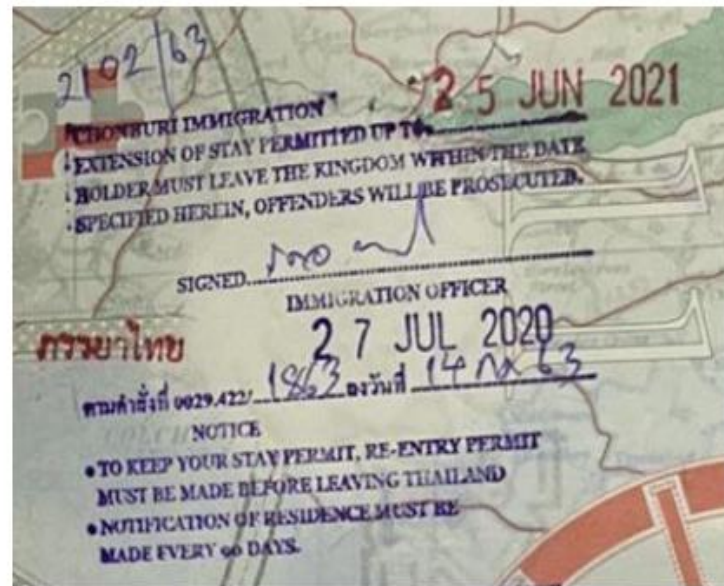 2102/63
25 JUN 2021
CHONBURI IMMIGRATION
EXTENSION OF STAY PERMITTED UP TO
HOLDER MUST LEAVE THE KINGDOM WITHIN THE DATE
SPECIFIED HEREIN, OFFENDERS WILL BE PROSECUTED.
SIGNED
IMMIGRATION OFFICER
27 JUL 2020
ภรรยาไทย
ตามคำสั่งที่ 0029.422/ 1863 ลงวันที่ 14 กค 63
NOTICE
• TO KEEP YOUR STAY PERMIT, RE-ENTRY PERMIT
MUST BE MADE BEFORE LEAVING THAILAND
• NOTIFICATION OF RESIDENCE MUST BE
MADE EVERY 90 DAYS.